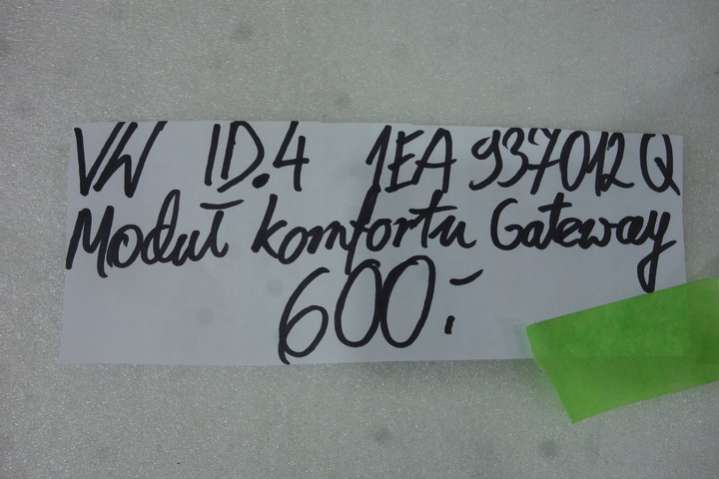 VW ID.4 1EA 937012Q
Moduł komfortu Gateway
600:-